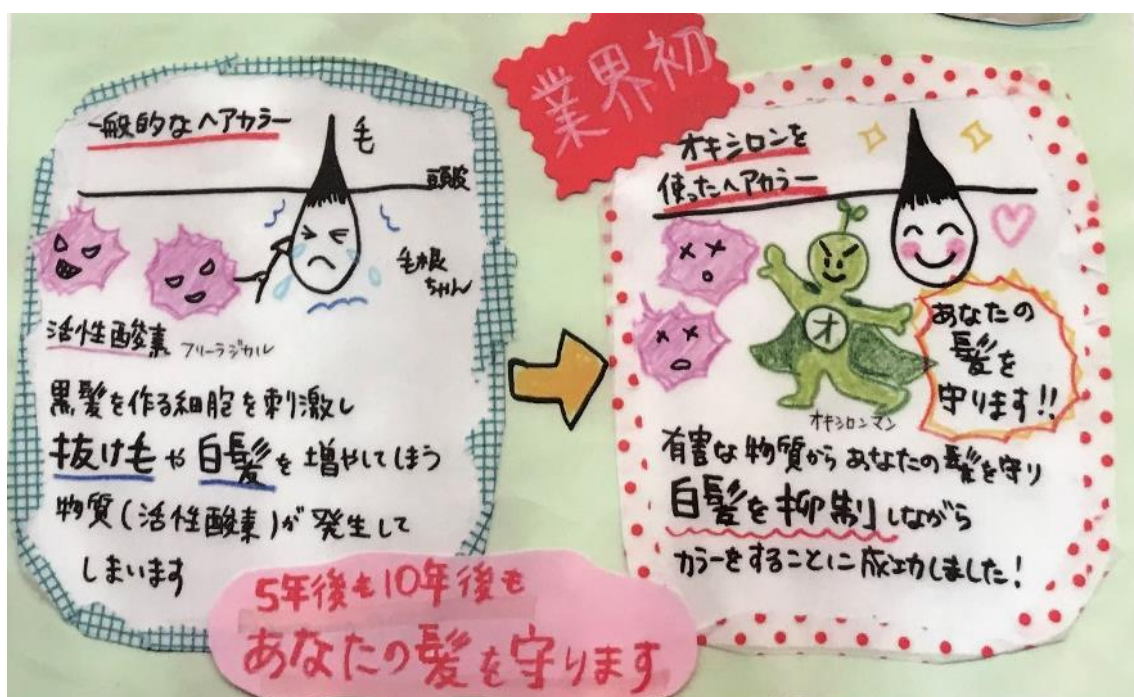 業界初
一般的なヘアカラー
毛
頭皮
毛根
ちゃん
活性酸素 フリーラジカル
黒髪を作る細胞を刺激し
抜け毛や白髪を増やしてしまう
物質(活性酸素)が発生して
しまいます
オキシロンを
使ったヘアカラー
オ
オキシロンマン
あなたの
髪を
守ります!!
有害な物質からあなたの髪を守り
白髪を抑制しながら
カラーをすることに成功しました!
5年後も10年後も
あなたの髪を守ります